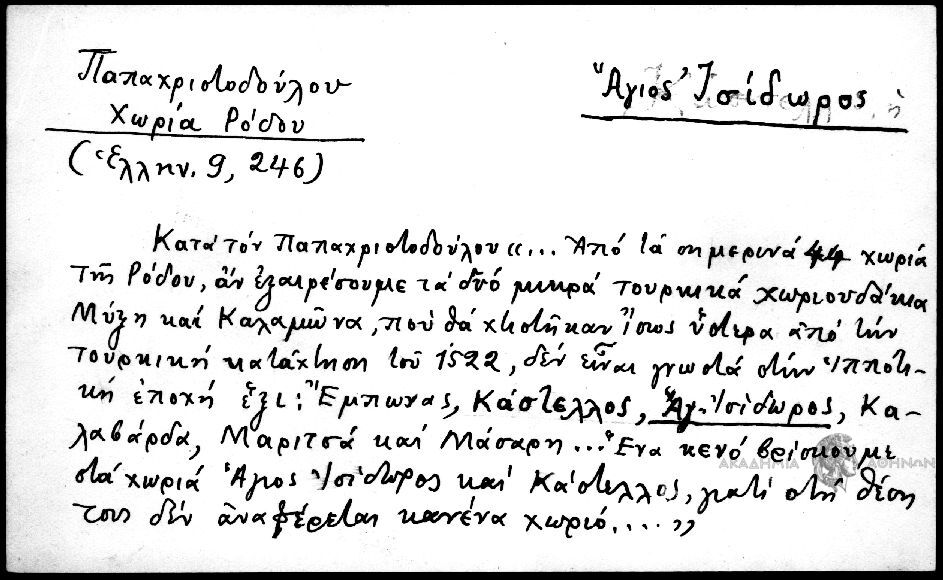 Παπαχριστοδούλου
Χωριά Ρόδου
(Ἑλλην. 9, 246)
Ἅγιος Ἰσίδωρος, ὁ
Κατά τόν Παπαχριστοδούλου «... Ἀπό τά σημερινά 44 χωριά
τῆς Ρόδου, ἄν ἐξαιρέσουμε τά δυό μικρά τουρκικά χωριουδάκια
Μύξη καί Καλαμῶνα, πού θά χτιστῆκαν ἴσως ὕστερα ἀπό τήν
τουρκική κατάχτηση τοῦ 1522, δέν εἶναι γνωστά στήν ἱπποτι-
κή ἐποχή ἕξι: Ἔμπωνας, Κάστελλος, Ἅγ. Ἰσίδωρος, Κα-
λαβάρδα, Μαριτσά καί Μάσαρη... Ἕνα κενό βρίσκουμε
στά χωριά Ἅγιος Ἰσίδωρος καί Κάστελλος, γιατί στή θέση
τους δέν ἀναφέρεται κανένα χωριό....»
ΑΚΑΔΗΜΙΑ ΑΘΗΝΩΝ